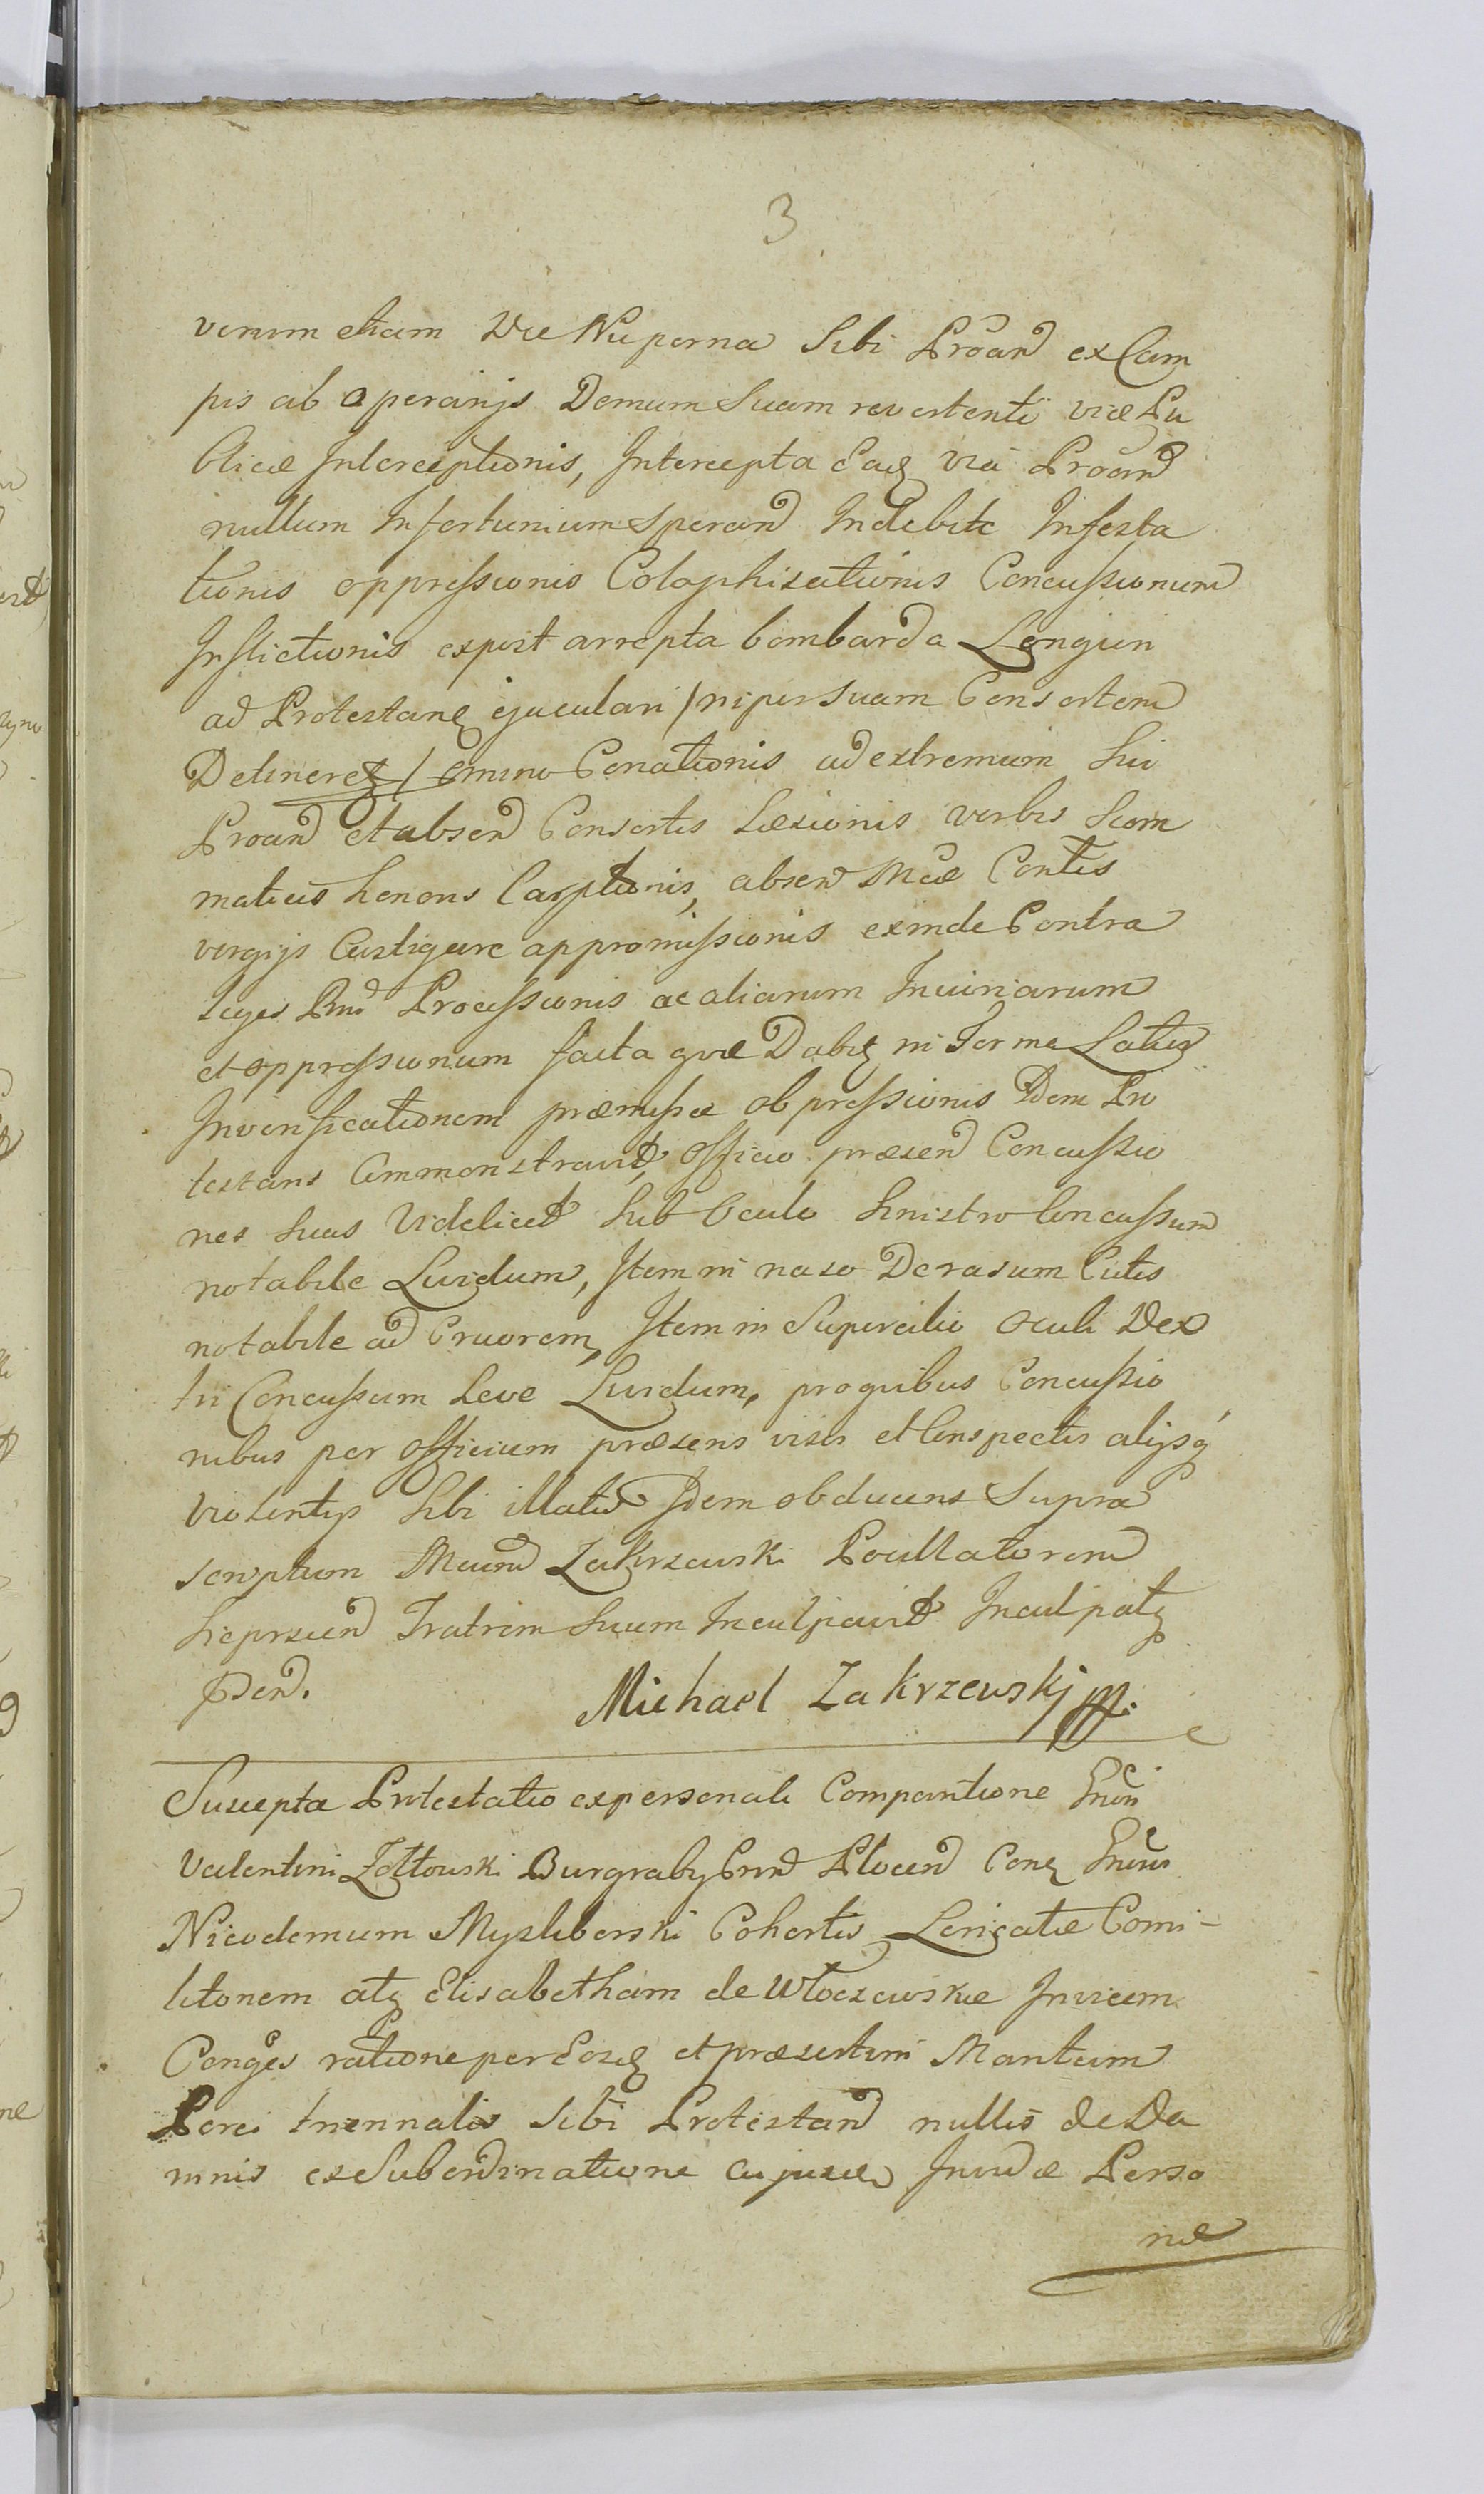 3
verum etiam Die Nuperna Sibi Proand ex Cam
pis ab operarijs Domum Suam revertenti viæ Pu
blicæ Interceptionis, Intercepta Eaq via Proand
nullum Infortunium Sperand Indebite Infesta
tionis oppressionis Colaphisationis Concussionum
Inflictionis expost arrepta bombarda Longiori
ad Protestanq ejaculari / ni per Suam Consortem
Detineretq / omino Conationis ad extremum Sui
Proand et absend Consortis Læsionis verbis Scom
maticis honoris Carptionis, absen Mcæ Contis
virgijs Castigare appromissionis exinde Contra
Leges Rni Processionis ac aliarum Iniuriarum
et oppressionum facta quæ Dabq in Termc Latiq
In verificationem præmissæ obpressionis Idem Pro
testans Commonstravit, Officio præsend Concussio
nes Suas Videlicet Sub Oculo Sinistro Concussum
notabile Lividum, Item in naso Derasum Cutis
notabile ad Cruorem, Item in Supercilio Oculi Dex
tri Concussum Leve Lividum, pro quibus Concussio
nibus per officium præsens visis et Conspectis alijsq
violentijs Sibi illatis Idem obducens Supra
scriptum Zakrzewski Pocillatorem
Fratrem Suum Inculpavit Inculpatq
Michael Zakrzewskj mp.
Suscepta Protestatio ex personali Comparitione Gnsi
Valentini Zołtowski Burgrabij Cnsi Plocen Conq Gnsum
Nicodemum Mysliborski Cohortis Loricatæ Comi-
litonem atq Elisabetham de Włoczewskie Invicem
Conges ratione per Eosq et præsertim Maritum
Porci triennalis Sibi Protestand nullis de Da
mnis ex Subordinatione cujusq Invidæ Perso
næ